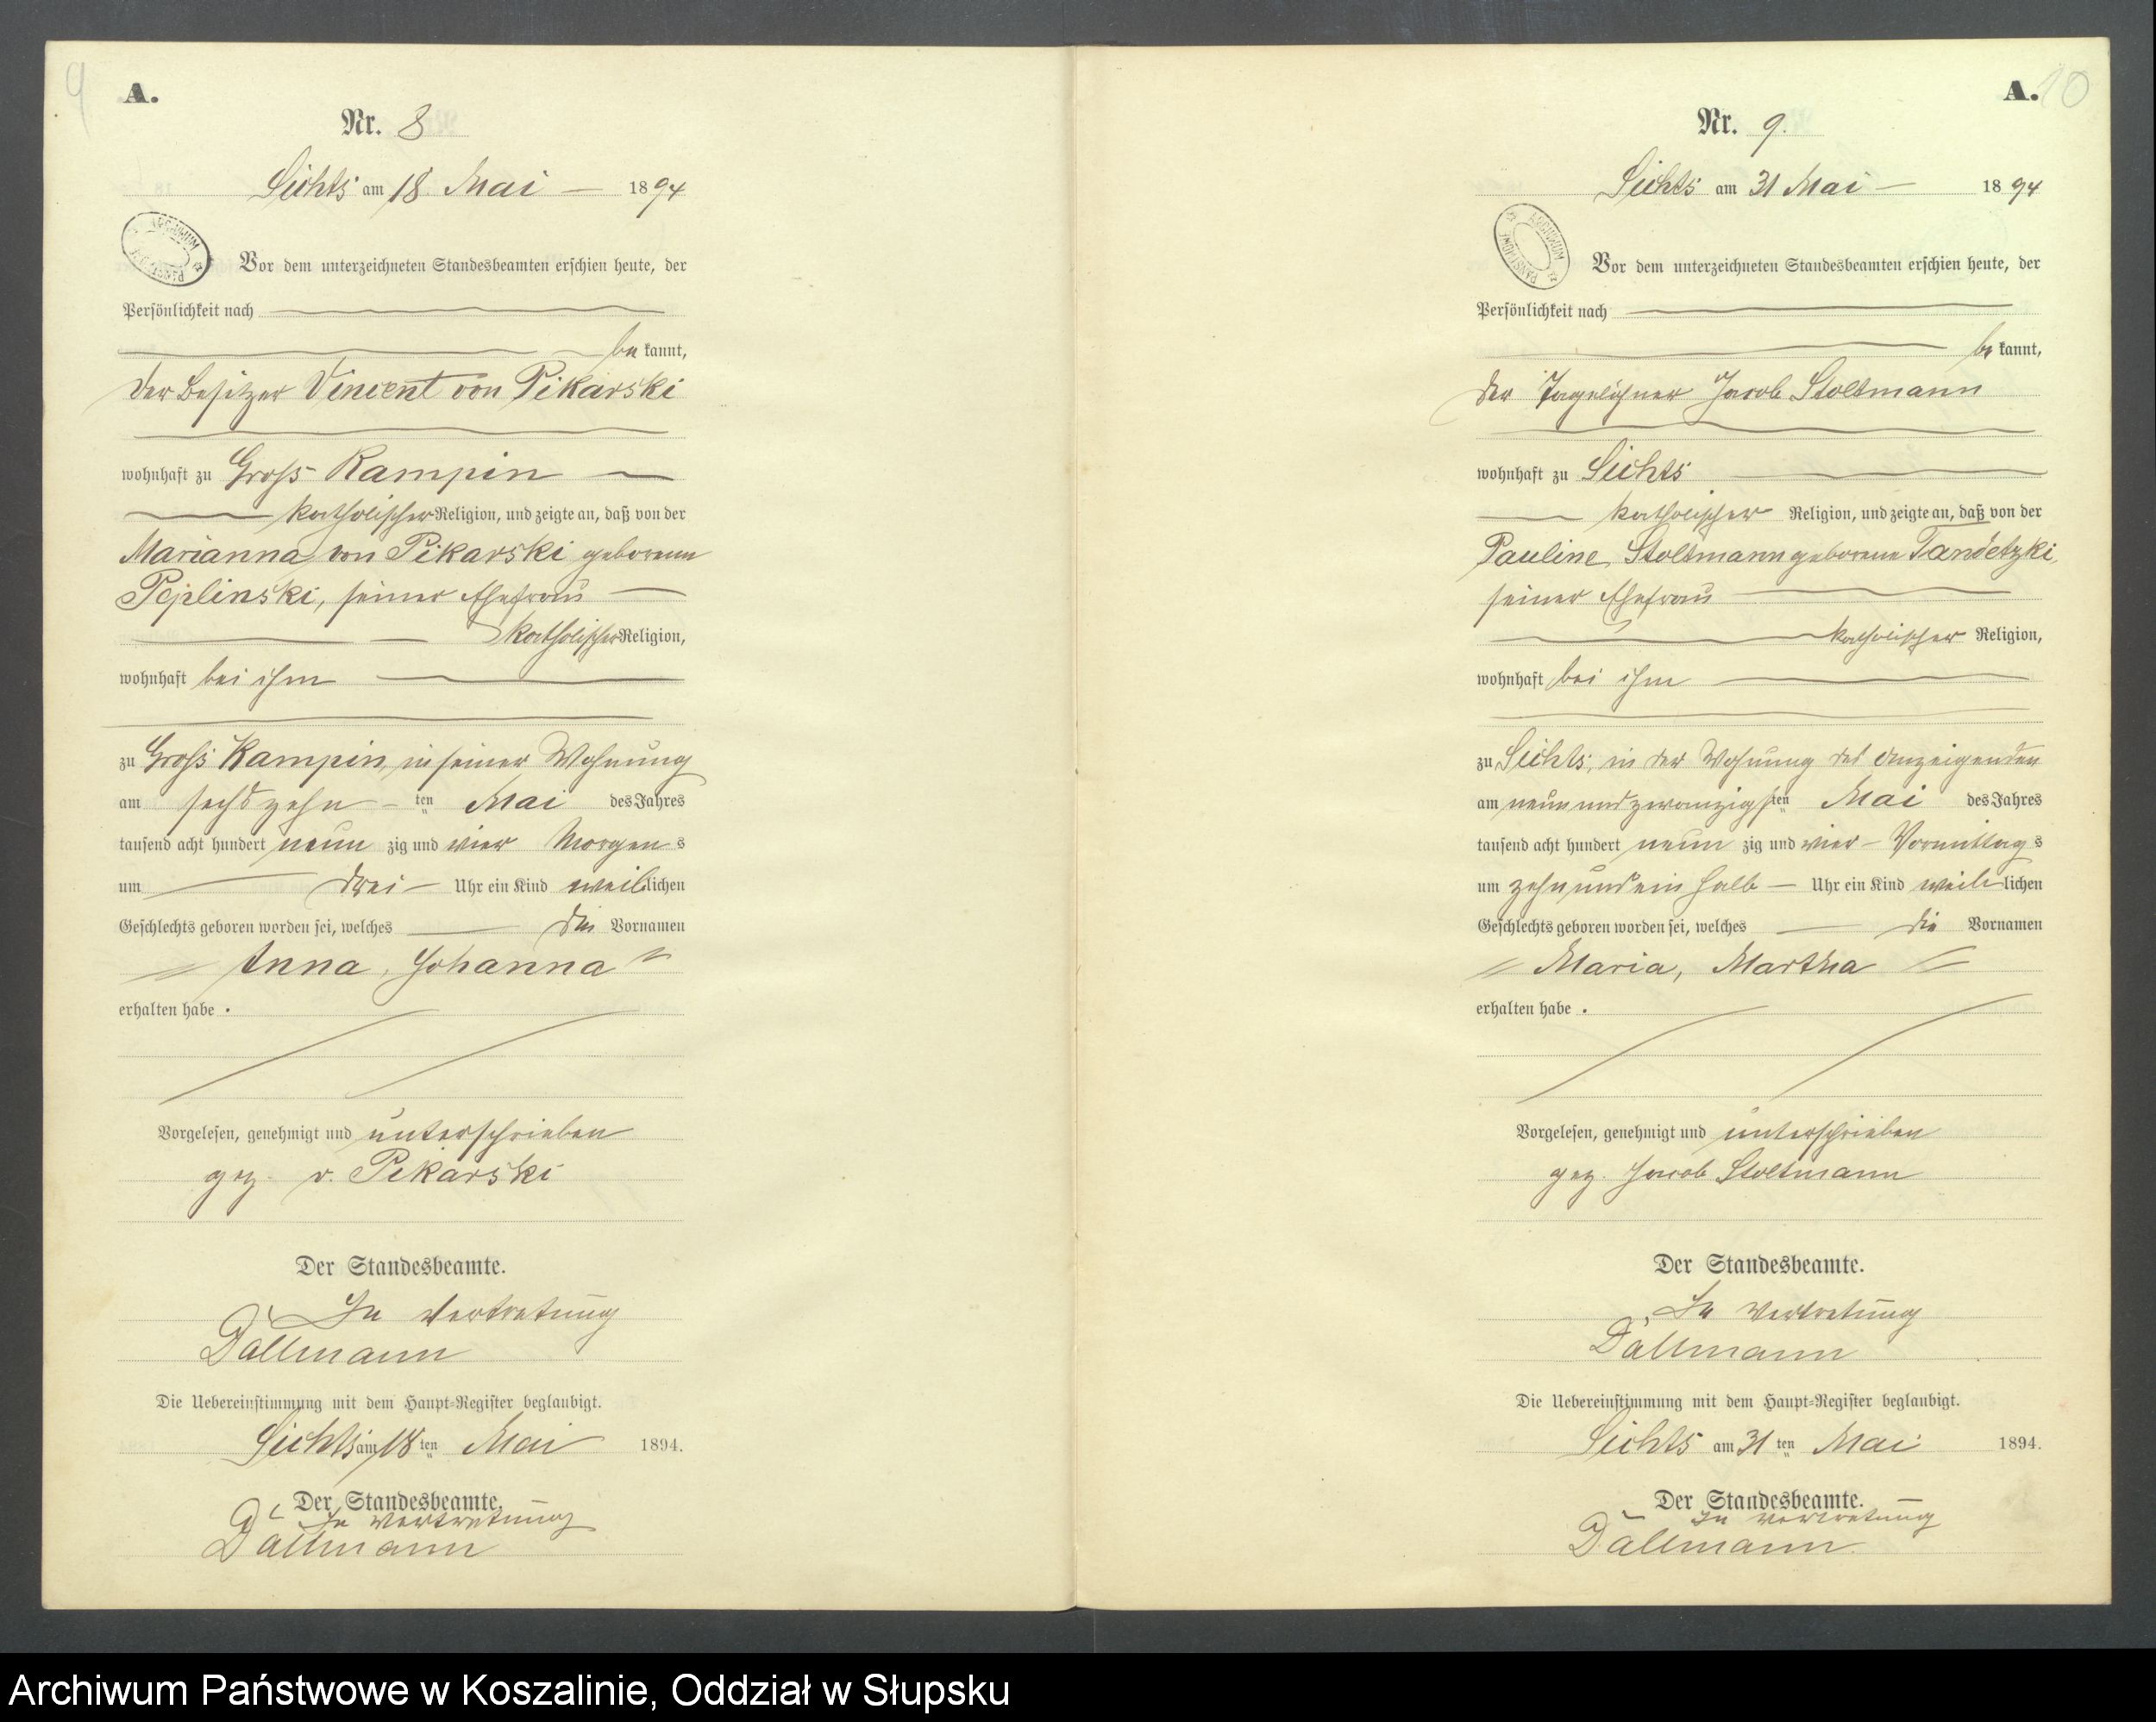 9
A.
Nr. 8
Lichts am 18 Mai 1894
Vor dem unterzeichneten Standesbeamten erschien heute, der
Persönlichkeit nach
be kannt,
der Besitzer Vincent von Pikarski
wohnhaft zu Gross Kampin
katholischer Religion, und zeigte an, daß von der
Marianna von Pikarski geborenen
Peplinski, seiner Ehefrau
katholischer Religion,
wohnhaft bei ihm
zu Gross Kampin, in seiner Wohnung
am sechszehn ten Mai des Jahres
tausend acht hundert neun zig und vier Morgen s
um drei Uhr ein Kind weiblichen
Geschlechts geboren worden sei, welches die Vornamen
Anna, Johanna
erhalten habe.
Vorgelesen, genehmigt und unterschrieben
gez. v. Pikarski
Der Standesbeamte.
In Vertretung
Dallmann
Die Uebereinstimmung mit dem Haupt-Register beglaubigt.
Lichts am 18 ten Mai 1894.
Der Standesbeamte.
In Vertretung
Dallmann
A. 10
Nr. 9.
Lichts am 31 Mai 1894
Vor dem unterzeichneten Standesbeamten erschien heute, der
Persönlichkeit nach
be kannt,
der Tagelöhner Jacob Stoltmann
wohnhaft zu Lichts
katholischer Religion, und zeigte an, daß von der
Pauline Stoltmann geborene Tandetzki,
seiner Ehefrau
katholischer Religion,
wohnhaft bei ihm
zu Lichts, in der Wohnung des Anzeigenden
am neunundzwanzigsten Mai des Jahres
tausend acht hundert neun zig und vier Vormittag s
um zehn und ein halb Uhr ein Kind weib lichen
Geschlechts geboren worden sei, welches die Vornamen
Maria, Martha
erhalten habe.
Vorgelesen, genehmigt und unterschrieben
gez. Jacob Stoltmann
Der Standesbeamte.
In Vertretung
Dallmann
Die Uebereinstimmung mit dem Haupt-Register beglaubigt.
Lichts am 31 ten Mai 1894.
Der Standesbeamte.
In Vertretung
Dallmann
Archiwum Państwowe w Koszalinie, Oddział w Słupsku